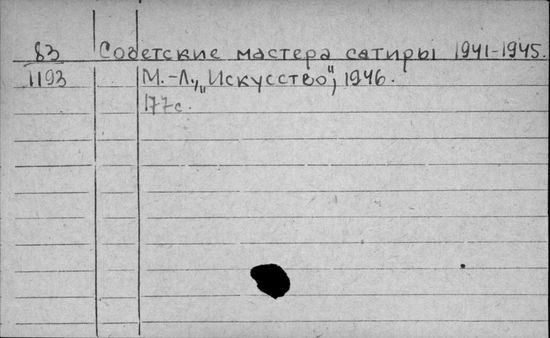 83 Советские мастера сатиры 1941-1945.
1193 М.-Л., „Искусство", 1946.
177 с.